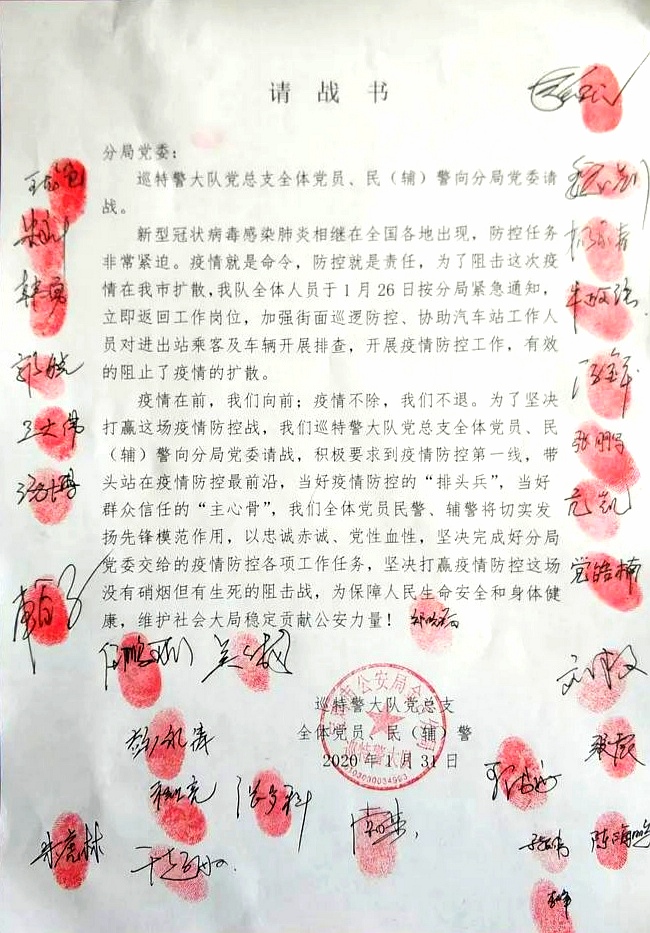 请战书
分局党委：
巡特警大队党总支全体党员、民（辅）警向分局党委请
战。
新型冠状病毒感染肺炎相继在全国各地出现，防控任务
非常紧迫。疫情就是命令，防控就是责任，为了阻击这次疫
情在我市扩散，我队全体人员于1月26日按分局紧急通知，
立即返回工作岗位，加强街面巡逻防控、协助汽车站工作人
员对进出站乘客及车辆开展排查，开展疫情防控工作，有效
的阻止了疫情的扩散。
疫情在前，我们向前；疫情不除，我们不退。为了坚决
打赢这场疫情防控战，我们巡特警大队党总支全体党员、民
（辅）警向分局党委请战，积极要求到疫情防控第一线，带
头站在疫情防控最前沿，当好疫情防控的“排头兵”，当好
群众信任的“主心骨”，我们全体党员民警、辅警将切实发
扬先锋模范作用，以忠诚赤诚、党性血性，坚决完成好分局
党委交给的疫情防控各项工作任务，坚决打赢疫情防控这场
没有硝烟但有生死的阻击战，为保障人民生命安全和身体健
康，维护社会大局稳定贡献公安力量！
巡特警大队党总支
全体党员、民（辅）警
2020年1月31日
韩勇
王文伟
张鹏宇
范凯
党皓楠